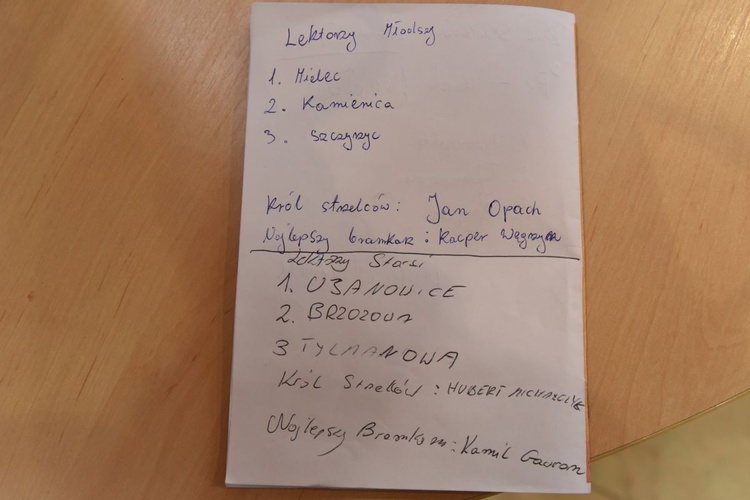 Lektorzy Młodsy
1. Mielec
2. Kamienica
3. Szczyrzyc
Król strzelców: Jan Opach
Najlepszy bramkarz: Kacper Węgrzyn
Lektorzy Starsi
1. UJANOWICE
2. BRZOZOWA
3 TYLMANOWA
Król Strzelców: HUBERT MICHALCZYK
Najlepszy Bramkarz: Kamil Gawron